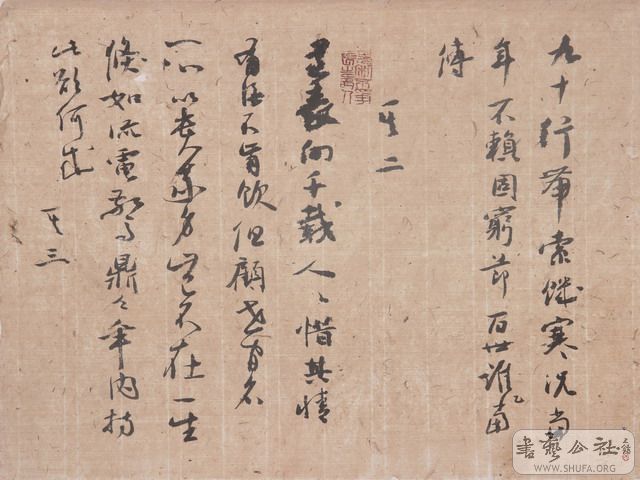 九十行帶索飢寒况當
年不賴固窮節百世誰當
傳
其二
道喪向千載人〻惜其情
有酒不肯飲但顧世間名
所以貴我身豈不在一生
倏如流電驚鼎〻年內持
此欲何成 其三
書藝公社
WWW.SHUFA.ORG